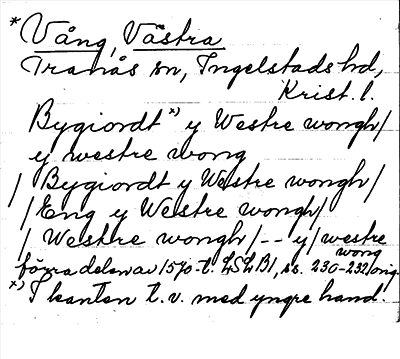 * Vång, Västra
Tranås sn, Ingelstads hd,
Krist. l.
Bygiordt *) y Westre wongh/
y westre wong
/ Bygiordt y Westre wongh/
/Eng y Westre wongh/
/ Westre wongh/ -- y/ westre wong
förra delen av 1570-t. LSLB1, ss. 230-232, orig.
*) I kanten t.v. med yngre hand.